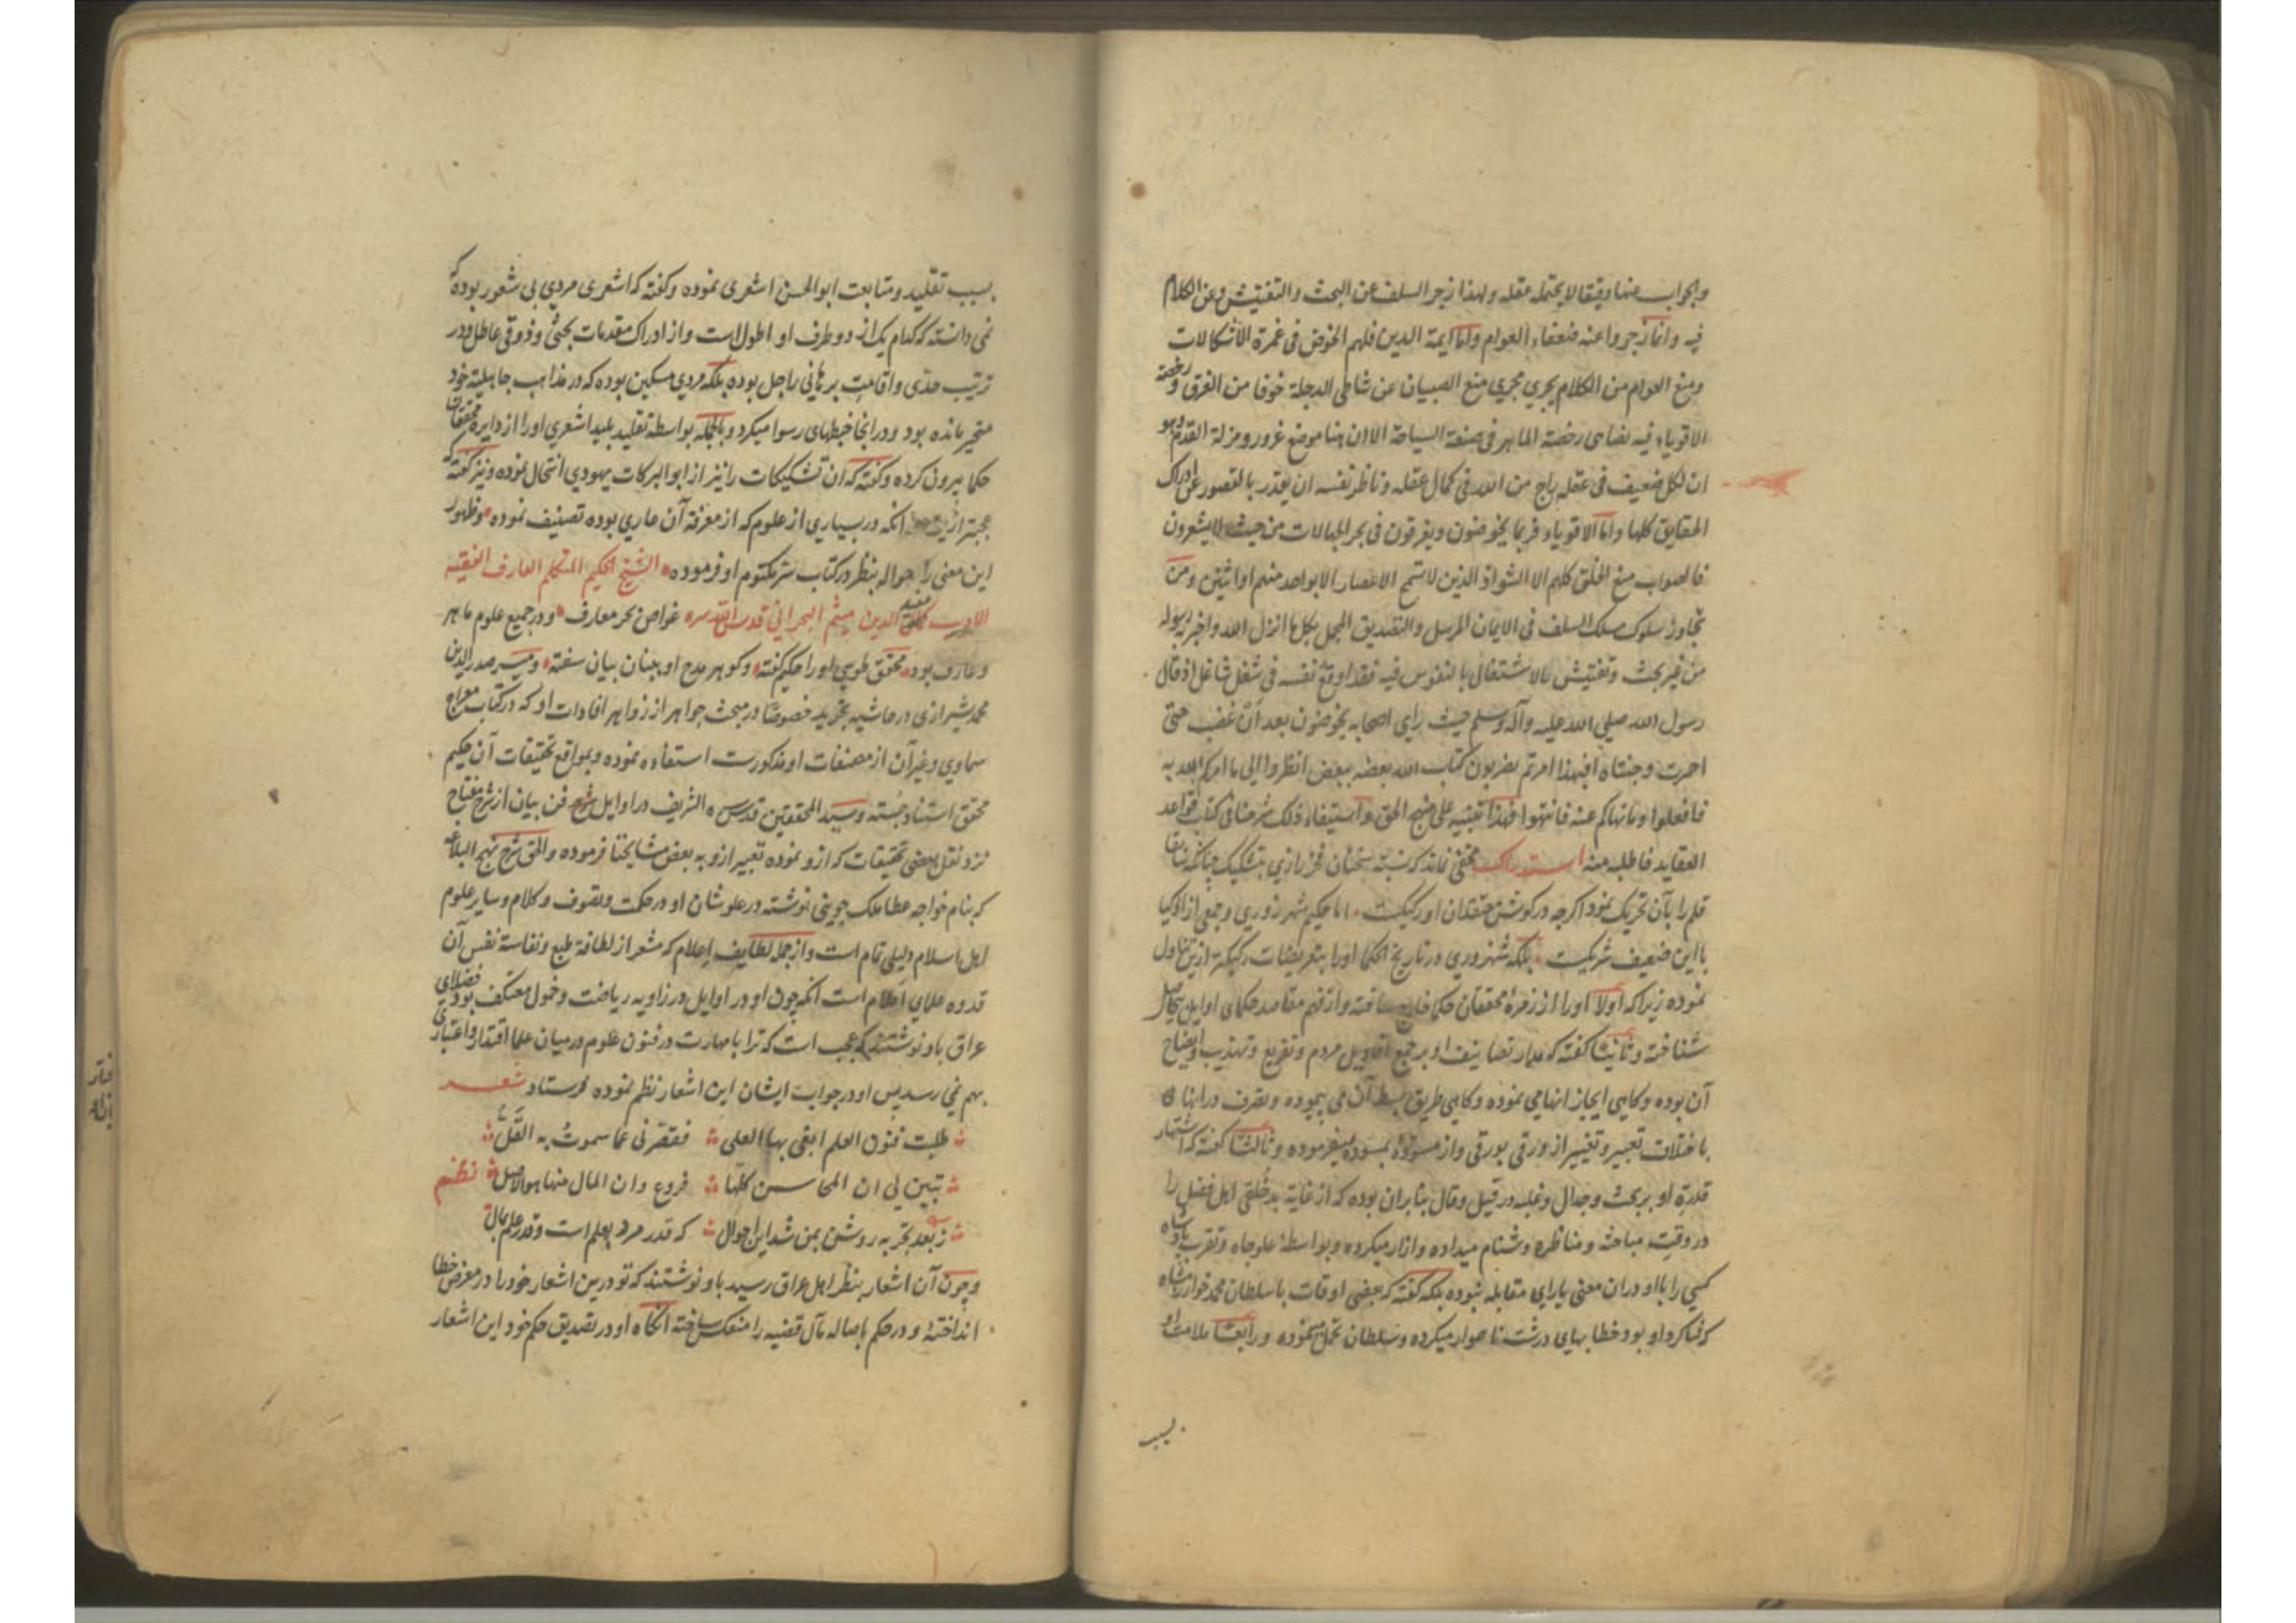 والجواب عنها دقيقا لا يحتمله عقله ولهذا زجر السلف عن البحث والتفتيش وعن الكلام
فيه وانما زجروا عنه ضعفاء العوام واما ايمة الدين فلهم الخوض فى غمرة الاشكالات
ومنع العوام من الكلام يجري مجري منع الصبيان عن شاطى الدجلة خوفا من الغرق ورخصة
الاقوياء فيه تضاهى رخصة الماهر فى صنعة السباحة الا ان هنا موضع غرور ومزلة القدم وهو
ان كل ضعيف فى عقله راج من الله فى كمال عقله وناظر نفسه ان يقدر بالقصور عن ادراك
الحقايق كلها واما الاقوياء فربما يخوضون ويغرقون فى بحر الجهالات من حيث لا يشعرون
فالصواب منع الخلق كلهم الا الشواذ الذين لا تسمح الاعصار الا بواحد منهم او اثنين ومن
تجاوز سلوك مسلك السلف فى الايمان المرسل والتصديق المجمل بكل ما انزل الله واخبر به رسوله
من غير بحث وتفتيش بالاشتغال بالنفوس فيه فقد اوقع نفسه فى شغل شاغل اذ قال
رسول الله صلى الله عليه وآله وسلم حيث راي اصحابه يخوضون بعد ان غضب حتى
احمرت وجنتاه افبهذا امرتم يضربون كتاب الله بعضه ببعض انظروا الى ما امركم الله به
فافعلوا وما نهاكم عنه فانتهوا فهذا تنبيه على منهج الحق واستيفاء ذلك شرحناه فى كتاب قواعد
العقايد فاطلبه منه استدراك مخفى نماند كه نسبة سخنان فخر رازي بتشكيك چنانكه سابقا
قلم را بآن تحريك نمود اكرچه در كوش معتقدان او ركيكست اما حكيم شهرزوري وجمعى از اذكيا
با اين ضعيف شريكست بلكه شهرزوري در تاريخ الحكما او را بتعريضات ركيكتر ازين تناول
نموده زيرا كه اولا او را از زمرهٔ محققان حكما خارج ساخته واز فهم مقاصد حكماى اوايل بيحاصل
شناخته وثانيا كفته كه مدار تصانيف او بر جمع اقاويل مردم وتفريع وتهذيب وايضاح
آن بوده وكاهى ايجاز انها مى نموده وكاهى طريق بسط آن مى پيموده وتصرف در انها
باختلاف تعبير وتغيير از ورقى بورقى واز مسوده بمسوده ميفرموده وثالثا كفته كه اشتهار
قدرة او بر بحث وجدال وغلبه در قيل وقال بنابران بوده كه از غاية بدخلقى اهل فضل را
در وقت مباحثه ومناظره دشنام ميداده وازار ميكرده وبواسطهٔ علو جاه وتقرب پادشاه
كسى را با او دران معنى ياراى مقابله نبوده بلكه كفته كه بعضى اوقات با سلطان محمد خوارزمشاه
كه شاكرد او بود خطابهاى درشت ناهموار ميكرده وسلطان تحمل مينموده ورابعا ملامت او
بسبب
بسبب تقليد ومتابعت ابو الحسن اشعرى نموده وكفته كه اشعرى مردى بى شعور بوده كه
نمى دانسته كه كدام يك از دو طرف او اطول است واز ادراك مقدمات بحثى وذوقى عاطل ودر
ترتيب حدى واقامت برهانى راجل بوده بلكه مردي مسكين بوده كه در مذاهب جاهلية خود
متحير مانده بود ودر انجا خبطهاى رسوا ميكرد وبالجمله بواسطه تقليد بليد اشعرى او را از دايره محققان
حكما بيرون كرده وكفته كه ان تشكيكات را نيز از ابو البركات يهودي انتحال نموده ونيز كفته كه
عجبتر ازين انكه در بسياري از علوم كه از معرفة آن عاري بوده تصنيف نموده وظهور
اين معنى را حواله بنظر در كتاب سر مكتوم او فرموده الشيخ الحكيم المتكلم العارف الفقيه
الاديب كمال الدين ميثم البحرانى قدس الله سره غواص بحر معارف ودر جميع علوم ماهر
وعارف بود محقق طوسى او را حكيم كفته وكوهر مدح او ببنان بيان سفته ومير صدر الدين
محمد شيرازى در حاشيه تجريد خصوصا در مبحث جواهر از زواهر افادات او كه در كتاب معراج
سماوي وغير آن از مصنفات او مذكورست استفاده نموده وبمواقع تحقيقات آن حكيم
محقق استناد جسته وسيد المحققين قدس سره الشريف در اوايل شرح فن بيان از شرح مفتاح
نزد نقل بعضى تحقيقات كه ازو نموده تعبير ازو به بعض مشايخنا فرموده والحق شرح نهج البلاغه
كه بنام خواجه عطا ملك جوينى نوشته در علو شان او در حكمت وتصوف وكلام وساير علوم
اهل اسلام دليلى تمام است واز جمله لطايف اعلام كه مشعر از لطافة طبع ونفاسة نفس آن
قدوه علماى اعلام است انكه چون او در اوايل در زاويه رياضت وخمول معتكف بود فضلاى
عراق باو نوشتند كه عجب است كه ترا با مهارت در فنون علوم در ميان علما اقتدار واعتبارى
بهم نمى رسد پس او در جواب ايشان اين اشعار نظم نموده فرستاد شعر
طلبت فنون العلم ابغى بها العلى فقصر نى عما سموت به القل
تبين لى ان المحاسن كلها فروع وان المال منها هو الاصل نظم
ز بعد تجربه روشن بمن شد اين احوال كه قدر مرد بعلم است وقدر علم بمال
وچون آن اشعار بنظر اهل عراق رسيد باو نوشتند كه تو درين اشعار خود را در معرض خطا
انداخته ودر حكم باصاله مآل قضيه را منعكس ساخته انكاه او در تصديق حكم خود اين اشعار